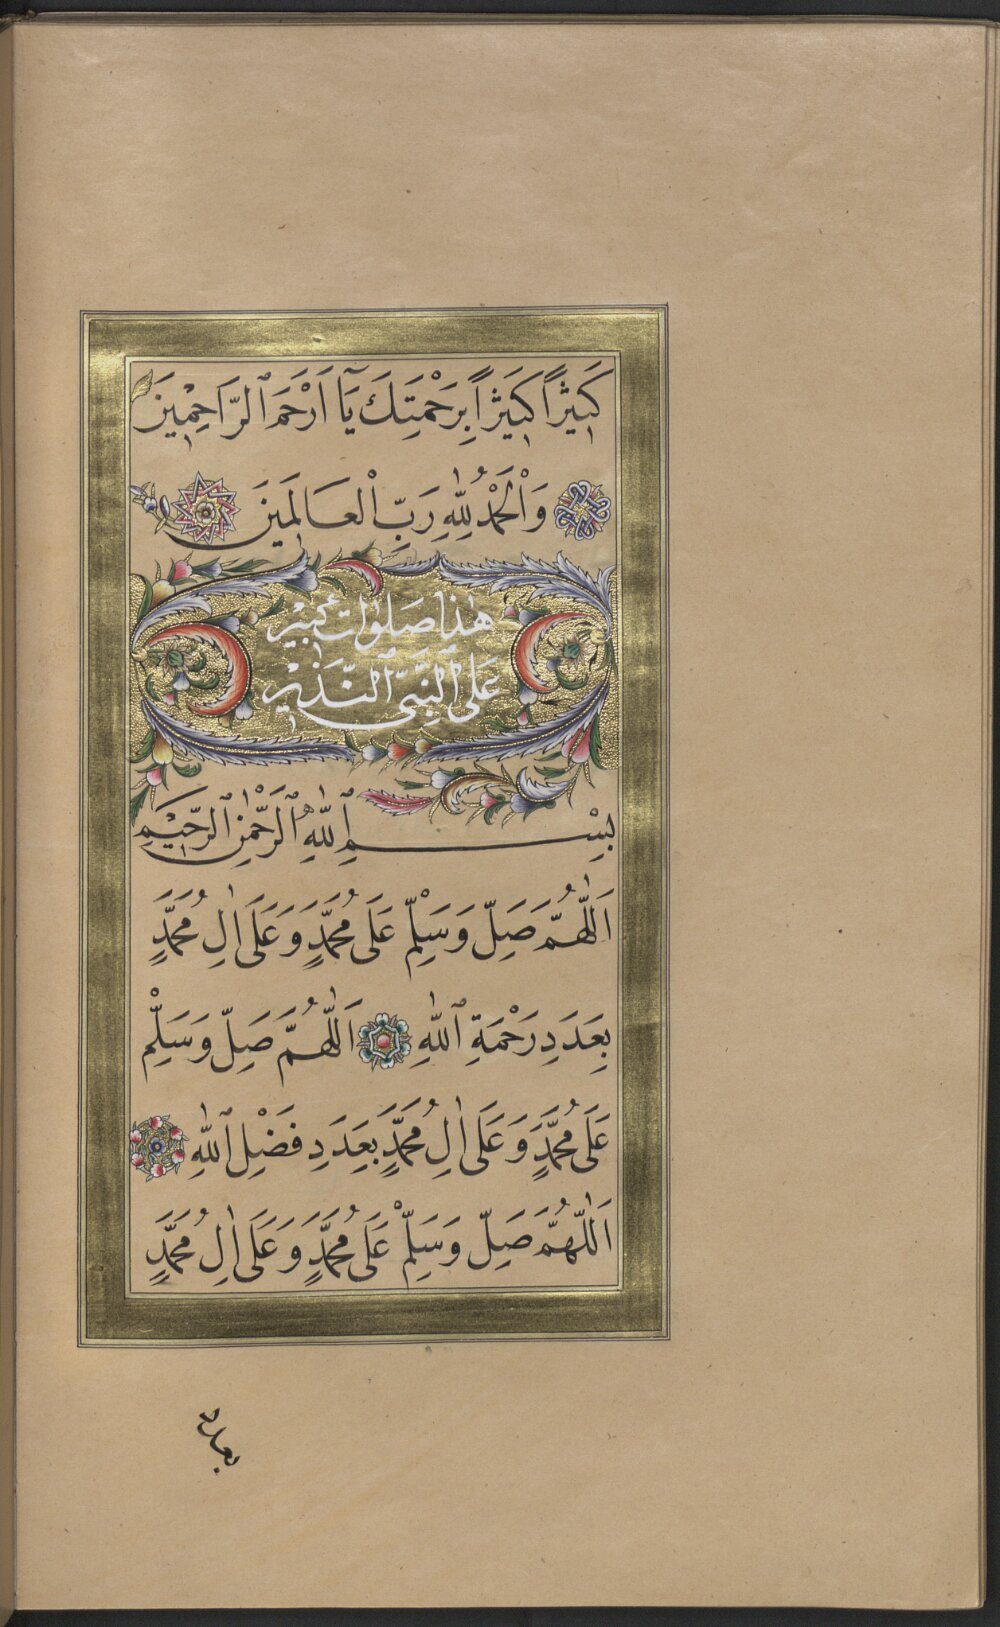 كَثِيرًا كَثِيرًا بِرَحْمَتِكَ يَآ اَرْحَمَ ٱلرَّاحِمِينَ
وَالْحَمْدُ لِلّٰهِ رَبِّ الْعَالَمِينَ
هٰذَا صَلَوَاتُ كَبِيْر
عَلَى النَّبِىِّ النَّذِيْر
بِسْمِ ٱللّٰهِ ٱلرَّحْمٰنِ ٱلرَّحِيْمِ
اَللّٰهُمَّ صَلِّ وَسَلِّمْ عَلَى مُحَمَّدٍ وَعَلَى اٰلِ مُحَمَّدٍ
بِعَدَدِ رَحْمَةِ ٱللّٰهِ اَللّٰهُمَّ صَلِّ وَسَلِّمْ
عَلَى مُحَمَّدٍ وَعَلَى اٰلِ مُحَمَّدٍ بِعَدَدِ فَضْلِ ٱللّٰهِ
اَللّٰهُمَّ صَلِّ وَسَلِّمْ عَلَى مُحَمَّدٍ وَعَلَى اٰلِ مُحَمَّدٍ
بعدد